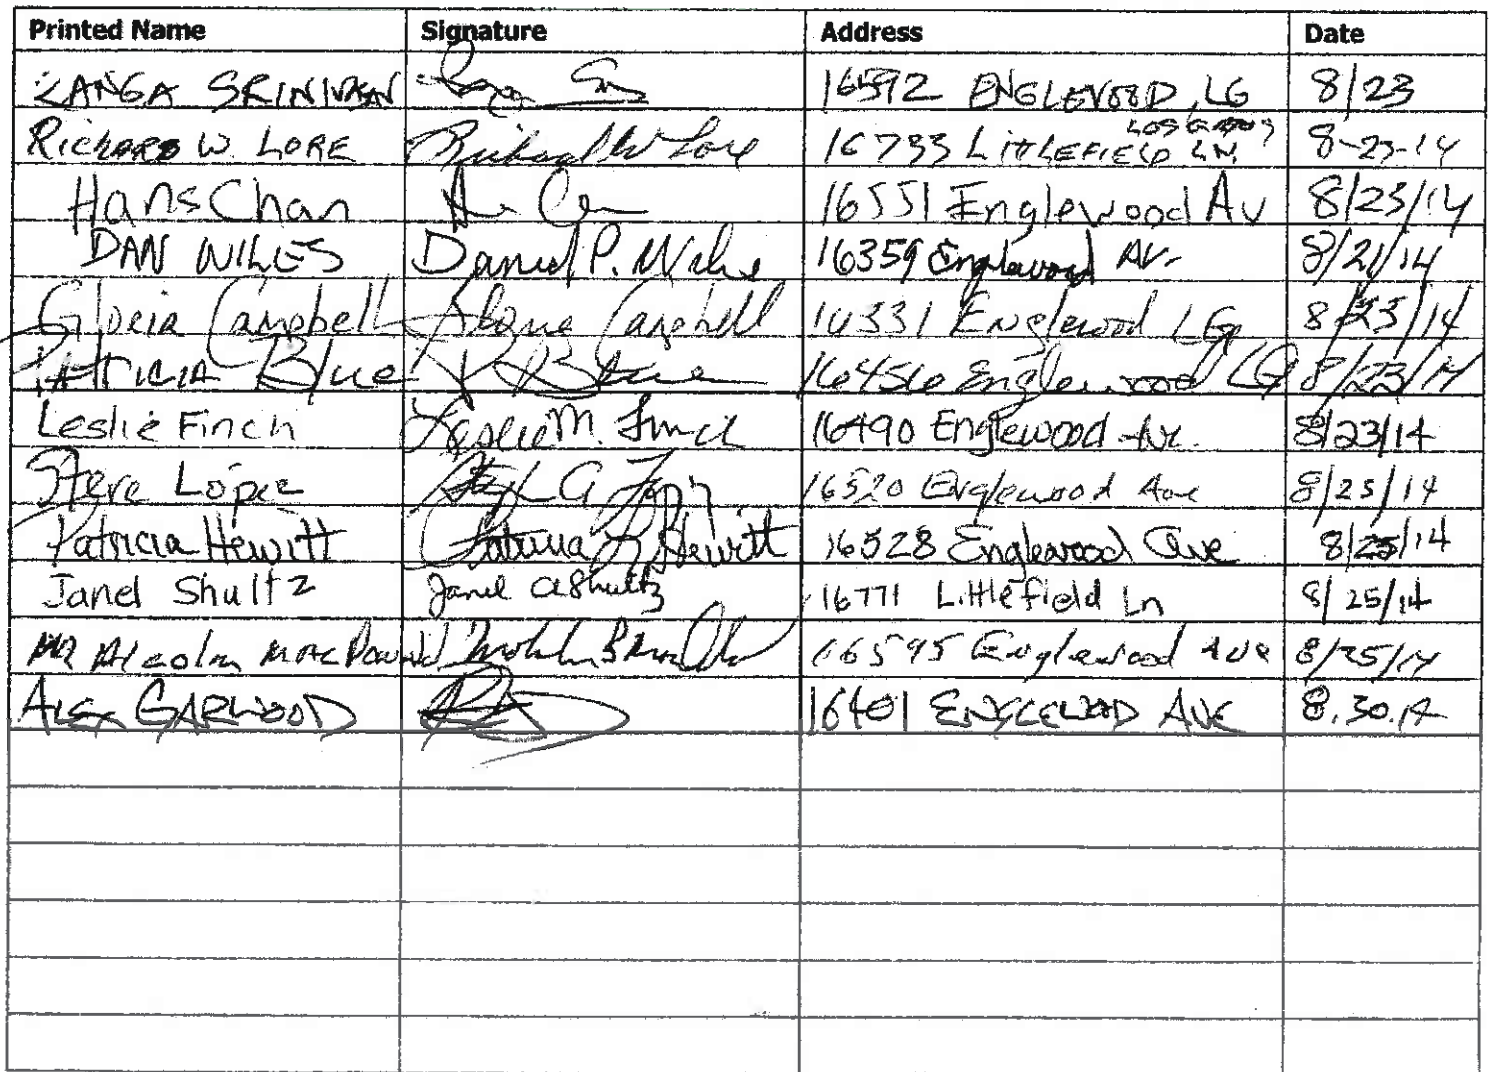 Printed Name Signature Address Date
SRINIVASAN 16592 ENGLEWOOD, LG 8/23
Richard W. LORE Richard W Lore 16733 LITTLEFIELD LN. LOS GATOS 8-23-14
Hans Chan 16551 Englewood Av 8/23/14
DAN WILES Daniel P. Wiles 16359 Englewood AV. 8/21/14
Gloria Campbell Gloria Campbell 16331 Englewood LG 8/23/14
PATRICIA Blue P Blue 16456 Englewood LG 8/23/14
Leslie Finch Leslie M. Finch 16490 Englewood Ave. 8/23/14
Steve Lopez 16520 Englewood Ave 8/25/14
Patricia Hewitt Patricia Hewitt 16528 Englewood Ave 8/25/14
Janel Shultz Janel A Shultz 16771 Littlefield Ln 8/25/14
Malcolm MacDonald 16595 Englewood Ave 8/25/14
ALEX GARWOOD 16401 ENGLEWOOD AVE 8.30.14